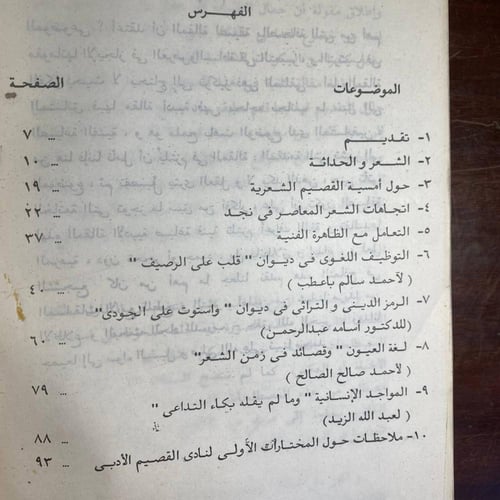 الفهرس
الموضوعات الصفحة
١- تقديم ... ٧
٢- الشعر و الحداثة ... ١٠
٣- حول أمسية القصيم الشعرية ... ١٩
٤- اتجاهات الشعر المعاصر فى نجد ... ٢٢
٥- التعامل مع الظاهرة الفنية ... ٣٧
٦- التوظيف اللغوى فى ديوان " قلب على الرصيف "
( لأحمد سالم باعطب ) ... ٤٠
٧- الرمز الدينى و التراثى فى ديوان " واستوت على الجودى "
(للدكتور أسامه عبدالرحمن)
٨- لغة العيون " وقصائد فى زمن الشعر " ... ٦٠
( لأحمد صالح الصالح )
٩- المواجد الإنسانية " وما لم يقله بكاء التداعى " ... ٧٩
( لعبد الله الزيد)
... ٨٨
١٠- ملاحظات حول المختارات الأولى لنادى القصيم الأدبى ... ٩٣